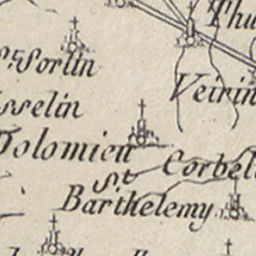 Thu
St. Sorlin
Veirin
sselin
Dolomieu
Corbel
St
Barthelemy